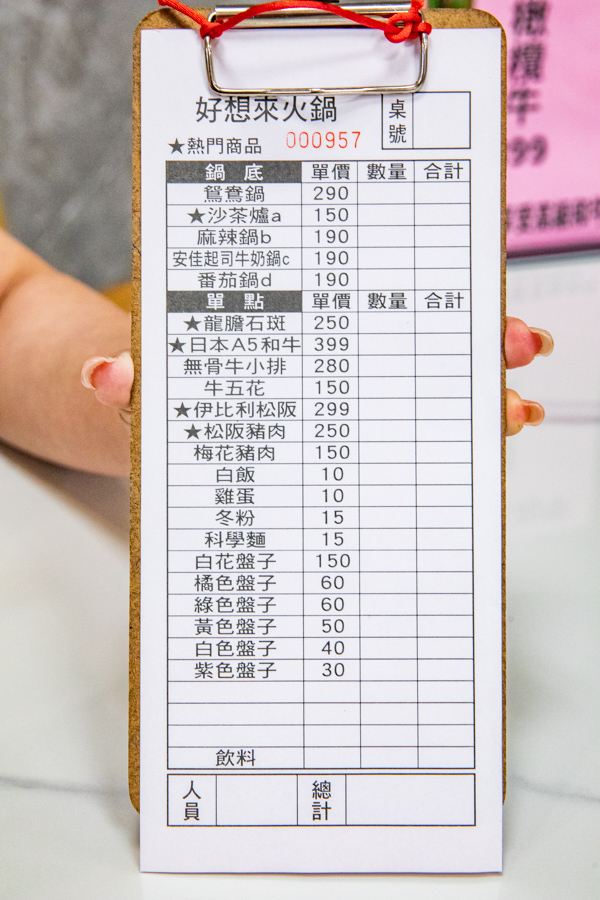 好想來火鍋
桌號
★熱門商品 000957
鍋底 單價 數量 合計
鴛鴦鍋 290
★沙茶爐a 150
麻辣鍋b 190
安佳起司牛奶鍋c 190
番茄鍋d 190
單點 單價 數量 合計
★龍膽石斑 250
★日本A5和牛 399
無骨牛小排 280
牛五花 150
★伊比利松阪 299
★松阪豬肉 250
梅花豬肉 150
白飯 10
雞蛋 10
冬粉 15
科學麵 15
白花盤子 150
橘色盤子 60
綠色盤子 60
黃色盤子 50
白色盤子 40
紫色盤子 30
飲料
人員 總計
橄欖牛
99